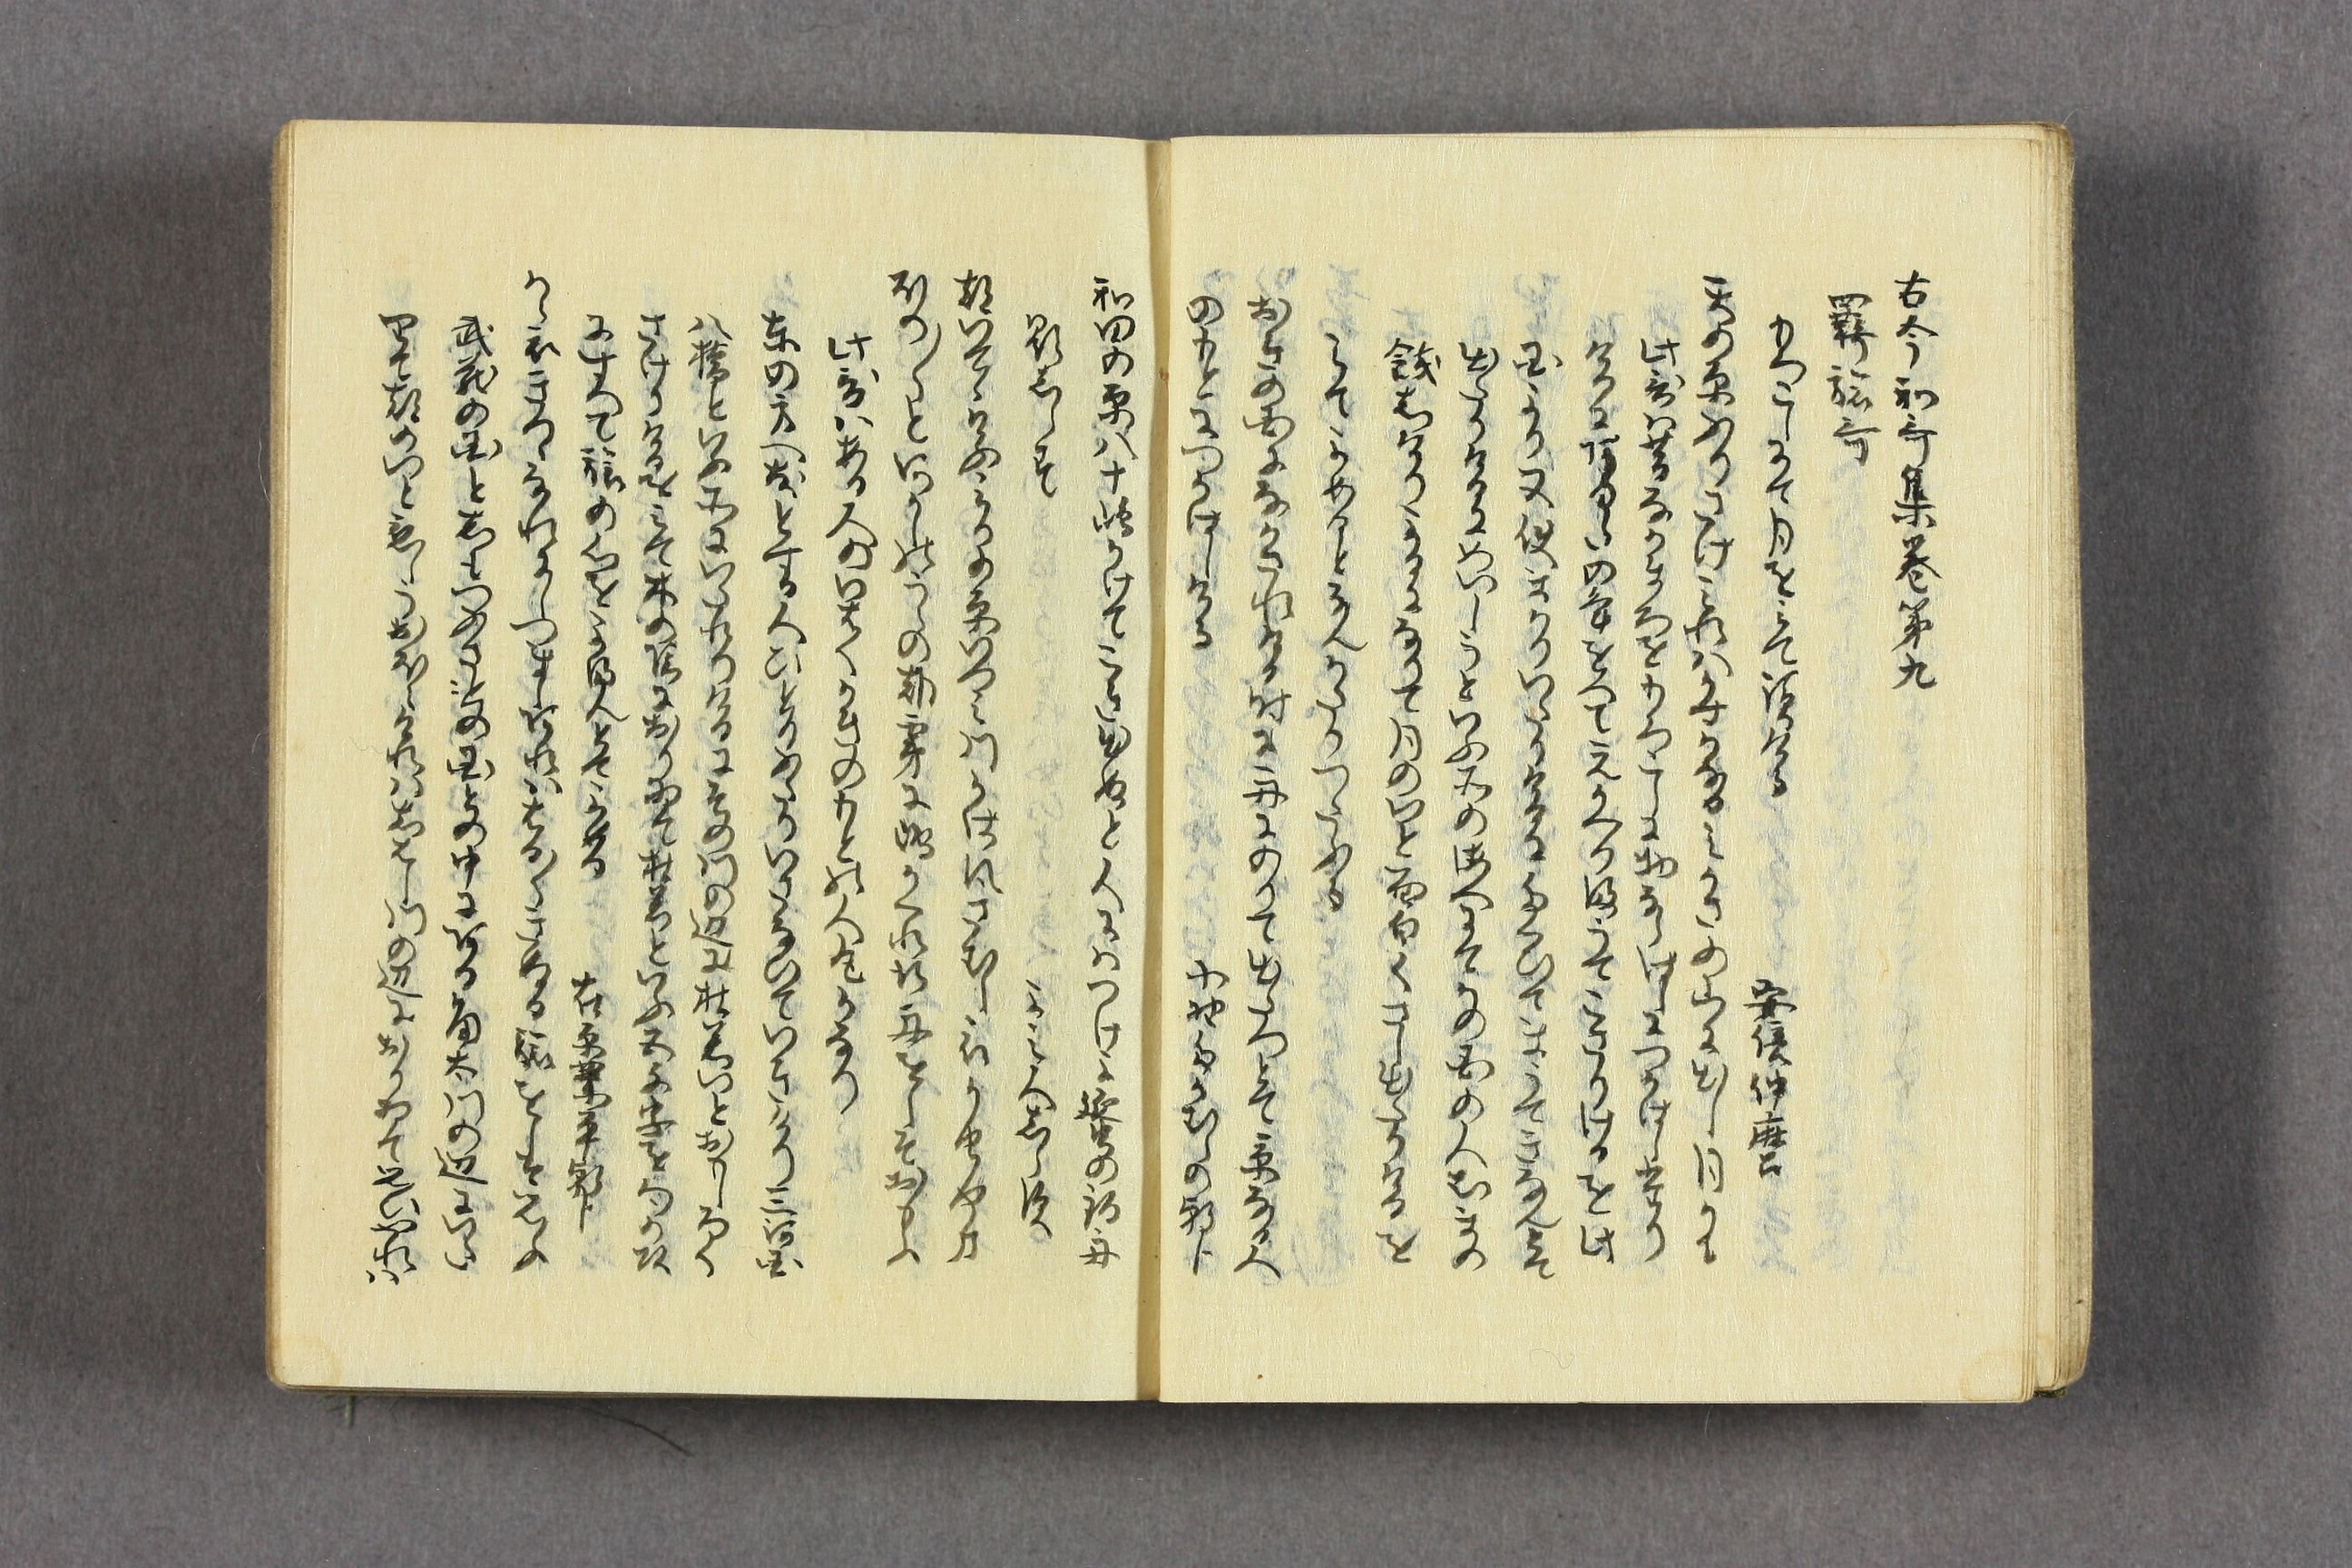 古今和哥集巻第九
羇旅哥
もろこしにて月をみて詠ける 安倍仲麿
天の原ふりさけみれはかすかなるみかさの山に出し月かも
此哥は昔なかまろをもろこしに物ならはしにつかはしたりけ
るにあまたの年をへてえかへりまうてこさりけるを此
国より又使まかりいたりけるにたくひてまうてきなんとて
出たちけるにめいしうといふ所の海へにてかの国の人むまの
餞しけりよるになりて月のいと面白くさし出たりけるを
みてよめるとなんかたりつたふる
おきの国になかされける時に舟にのりて出たつとて京なる人
のもとにつかはしける 小野たかむらの朝臣
和田の原八十嶋かけてこき出ぬと人にはつけよ蜑の釣舟
題しらす よみ人しらす
都いてゝけふみかの原いつみ川かは風さむし衣かせ山
ほの〳〵と明石の浦の朝霧に嶋かくれ行舟をしそ思ふ
此哥は或人のいはくかきのもとの人丸か也
東の方へ友とする人ひとりふたりいさなひていきけり三河国
八橋といふ所にいたれりけるにその河の辺に杜若いと面しろく
さけりけるをみて木の陰におりゐてかきつはたといふ五もしを句のかし
らにすへて旅の心をよまんとてよめる 在原業平朝臣
から衣きつゝなれにしつましあれははる〳〵きぬる旅をしそ思ふ
武蔵の国としもつふさの国との中にある角田河の辺にいた
りて都のいと恋しうおほえけれはしはし河の辺におりゐて思ひやれは